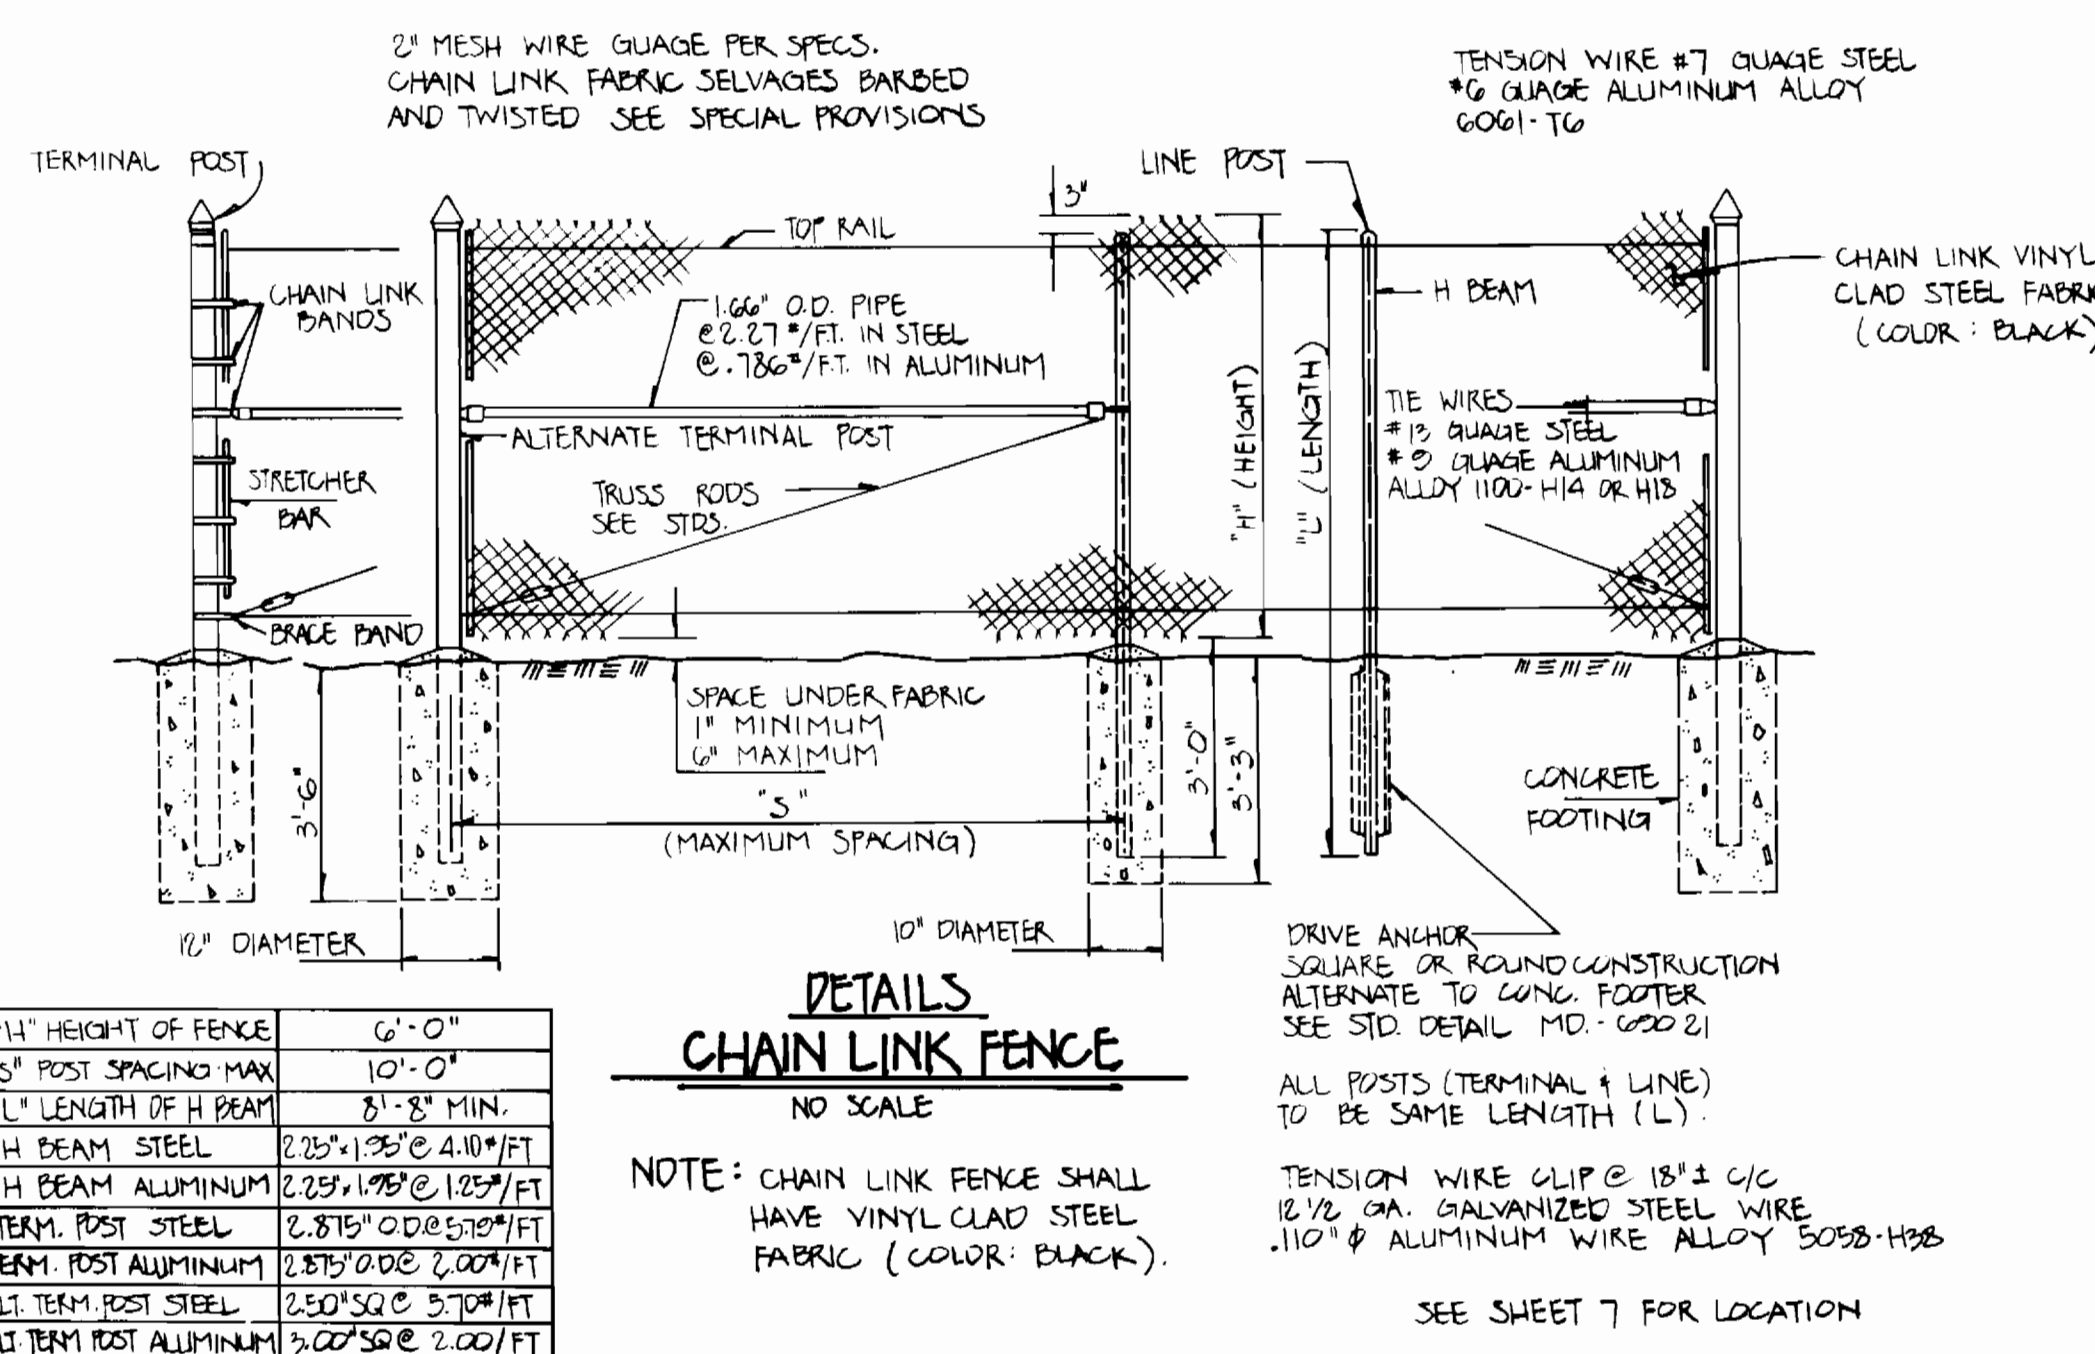 2" MESH WIRE GUAGE PER SPECS.
CHAIN LINK FABRIC SELVAGES BARBED
AND TWISTED SEE SPECIAL PROVISIONS
TENSION WIRE #7 GUAGE STEEL
#6 GUAGE ALUMINUM ALLOY
6061-T6
TERMINAL POST
LINE POST
3"
TOP RAIL
CHAIN LINK
BANDS
1.66" O.D. PIPE
@2.27#/FT. IN STEEL
@.786#/FT. IN ALUMINUM
H BEAM
CHAIN LINK VINYL
CLAD STEEL FABRIC
(COLOR: BLACK)
"H" (HEIGHT)
"L" (LENGTH)
ALTERNATE TERMINAL POST
TIE WIRES
#13 GUAGE STEEL
#9 GUAGE ALUMINUM
ALLOY 1100-H14 OR H18
STRETCHER
BAR
TRUSS RODS
SEE STDS.
BRACE BAND
SPACE UNDER FABRIC
1" MINIMUM
6" MAXIMUM
3'-6"
"S"
(MAXIMUM SPACING)
3'-0"
3'-3"
CONCRETE
FOOTING
12" DIAMETER
10" DIAMETER
DRIVE ANCHOR
SQUARE OR ROUND CONSTRUCTION
ALTERNATE TO CONC. FOOTER
SEE STD. DETAIL MD.-690 21
DETAILS
CHAIN LINK FENCE
NO SCALE
"H" HEIGHT OF FENCE 6'-0"
S" POST SPACING MAX 10'-0"
L" LENGTH OF H BEAM 8'-8" MIN.
H BEAM STEEL 2.25"x1.95"@ 4.10#/FT
H BEAM ALUMINUM 2.25"x1.95"@ 1.25#/FT
TERM. POST STEEL 2.875" O.D.@5.79#/FT
ERM. POST ALUMINUM 2.875" O.D.@ 2.00#/FT
LT. TERM. POST STEEL 2.50"SQ@ 5.70#/FT
LT. TERM POST ALUMINUM 3.00"SQ@ 2.00/FT
NOTE: CHAIN LINK FENCE SHALL
HAVE VINYL CLAD STEEL
FABRIC (COLOR: BLACK).
ALL POSTS (TERMINAL & LINE)
TO BE SAME LENGTH (L).
TENSION WIRE CLIP @ 18"± C/C
12 1/2 GA. GALVANIZED STEEL WIRE
.110" φ ALUMINUM WIRE ALLOY 5058-H38
SEE SHEET 7 FOR LOCATION